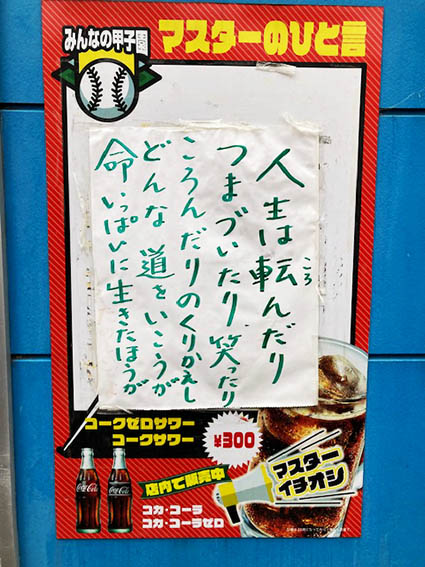 みんなの甲子園
マスターのひと言
人生は転んだり
ころ
つまづいたり、笑ったり
ころんだりのくりかえし
どんな道をいこうが
命いっぱいに生きたほうが
コークゼロサワー
コークサワー
¥300
店内で販売中
コカ・コーラ
コカ・コーラゼロ
マスター
イチオシ
Coca-Cola
Coca-Cola